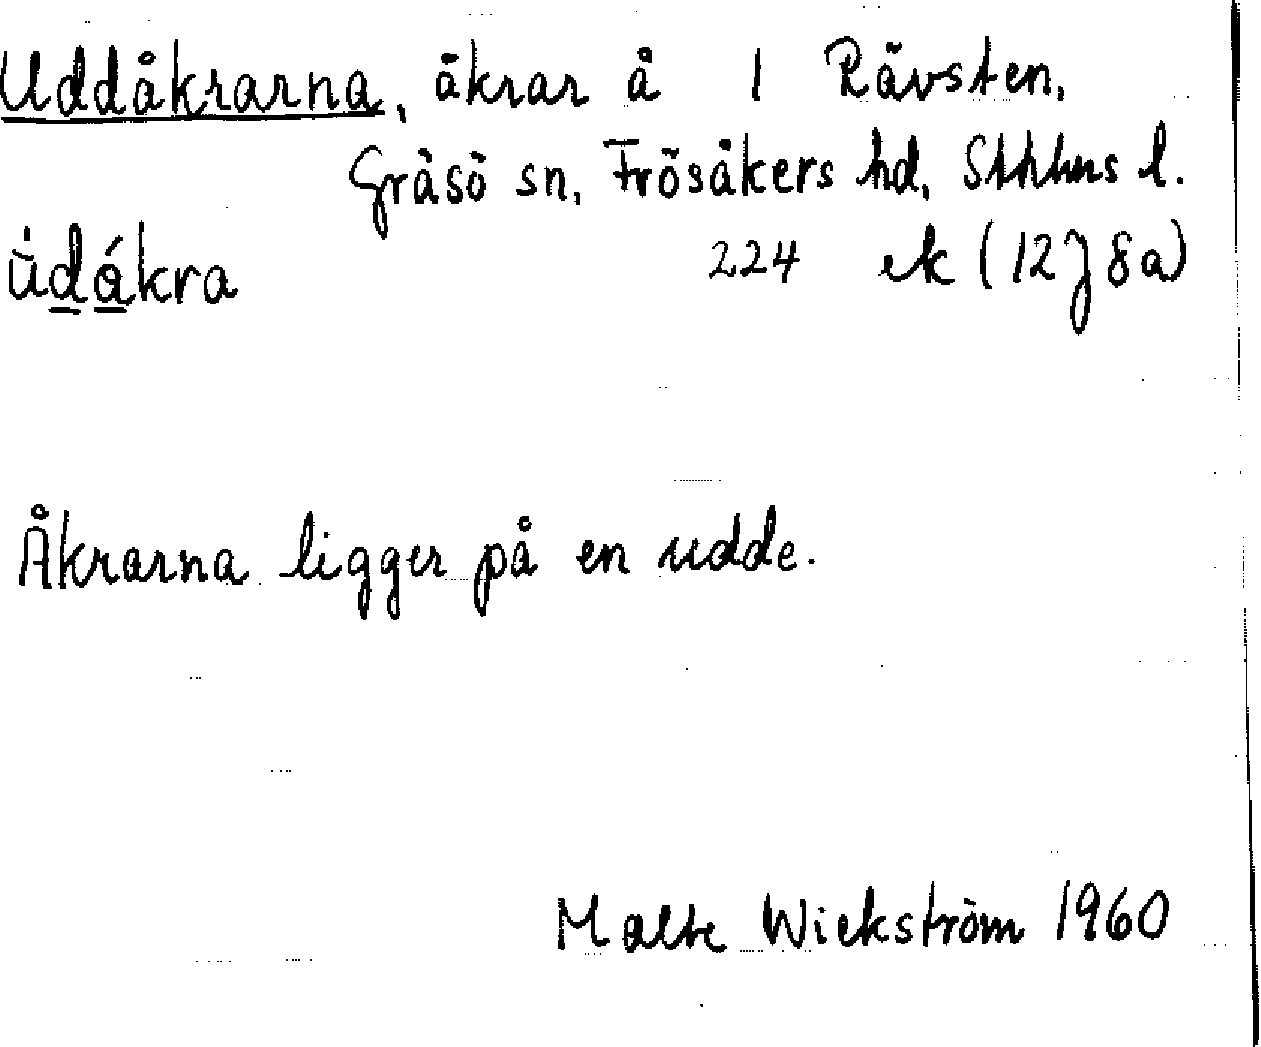 Uddåkrarna, åkrar å 1 Rävsten,
Gräsö sn, Frösåkers hd, Sthlms l.
ùdákra 224 ek (12J 8a)
Åkrarna ligger på en udde.
Malte Wickström 1960